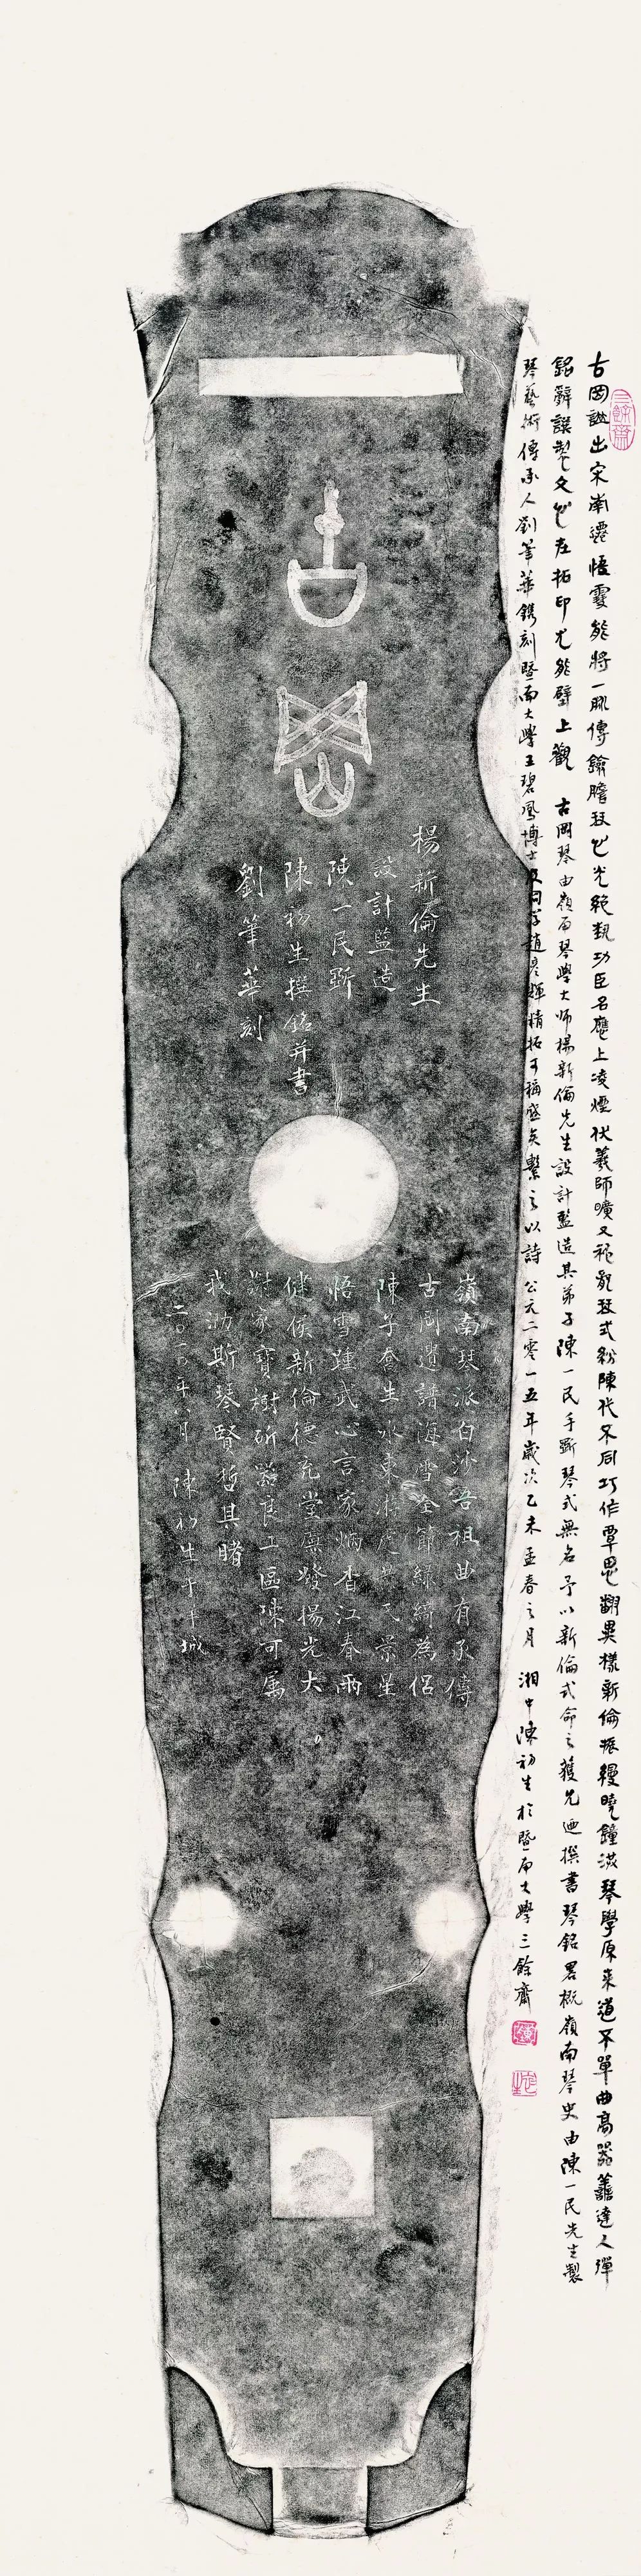 古岡
楊新倫先生
設計監造
陳一民斲
陳初生撰銘并書
劉筆華刻
嶺南琴派白沙吾祖曲有承傳
古岡遺譜海雪全節綠綺為侶
陳子喬生水東游虎典氏景星
悟雪踵武心言家炳香江春雨
健侯新倫德充堂稟發揚光大
謝家寶樹斫器良工區陳可屬
我泐斯琴賢哲其睹
二〇一〇年八月 陳初生于羊城
古岡譜出宋南遷悟雪能將一脈傳鑄膽琴心光絕執功臣名應上凌煙伏羲師曠又神農琴式紛陳代不同巧作覃思翻異樣新倫振鐸曉鐘撞琴學原來道不單曲高器善達人彈
銘辭撰製文心在拓印尤能壁上觀 古岡琴由嶺南琴學大師楊新倫先生設計監造其弟子陳一民手斲琴式無名予以新倫式命之獲允迺撰書琴銘畧概嶺南琴史由陳一民先生製
琴藝術傳承人劉筆華鐫刻暨南大學王碧鳳博士及同學趙彥輝精拓可稱盛矣繫之以詩 公元二零一五年歲次乙未孟春之月 湘中陳初生於暨南大學三餘齋
三餘齋